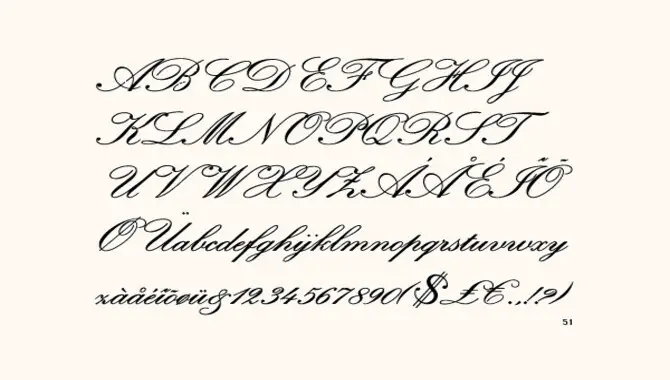 ABCDEFGHIJ
KLMNOPQRST
UVWXYZÀÅÉÎÕ
ØÜabcdefghijklmnopqrstuvwxy
zàåéîõøü&1234567890($£€.,!?)
51